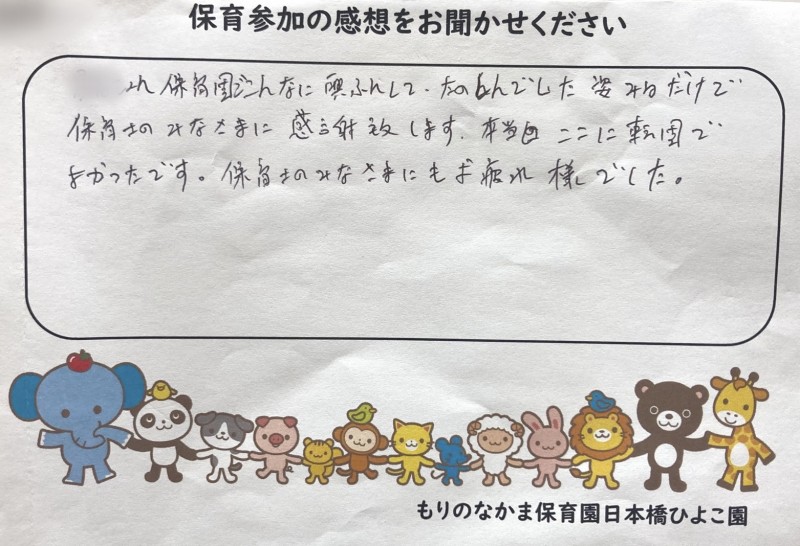 保育参加の感想をお聞かせください
れ 保育園でこんなに興ふんして、たのしんでした 姿 みるだけで
保育士のみなさまに 感謝致します。本当に ここに転園で
よかったです。保育士のみなさまにもお疲れ 様でした。
もりのなかま保育園日本橋ひよこ園